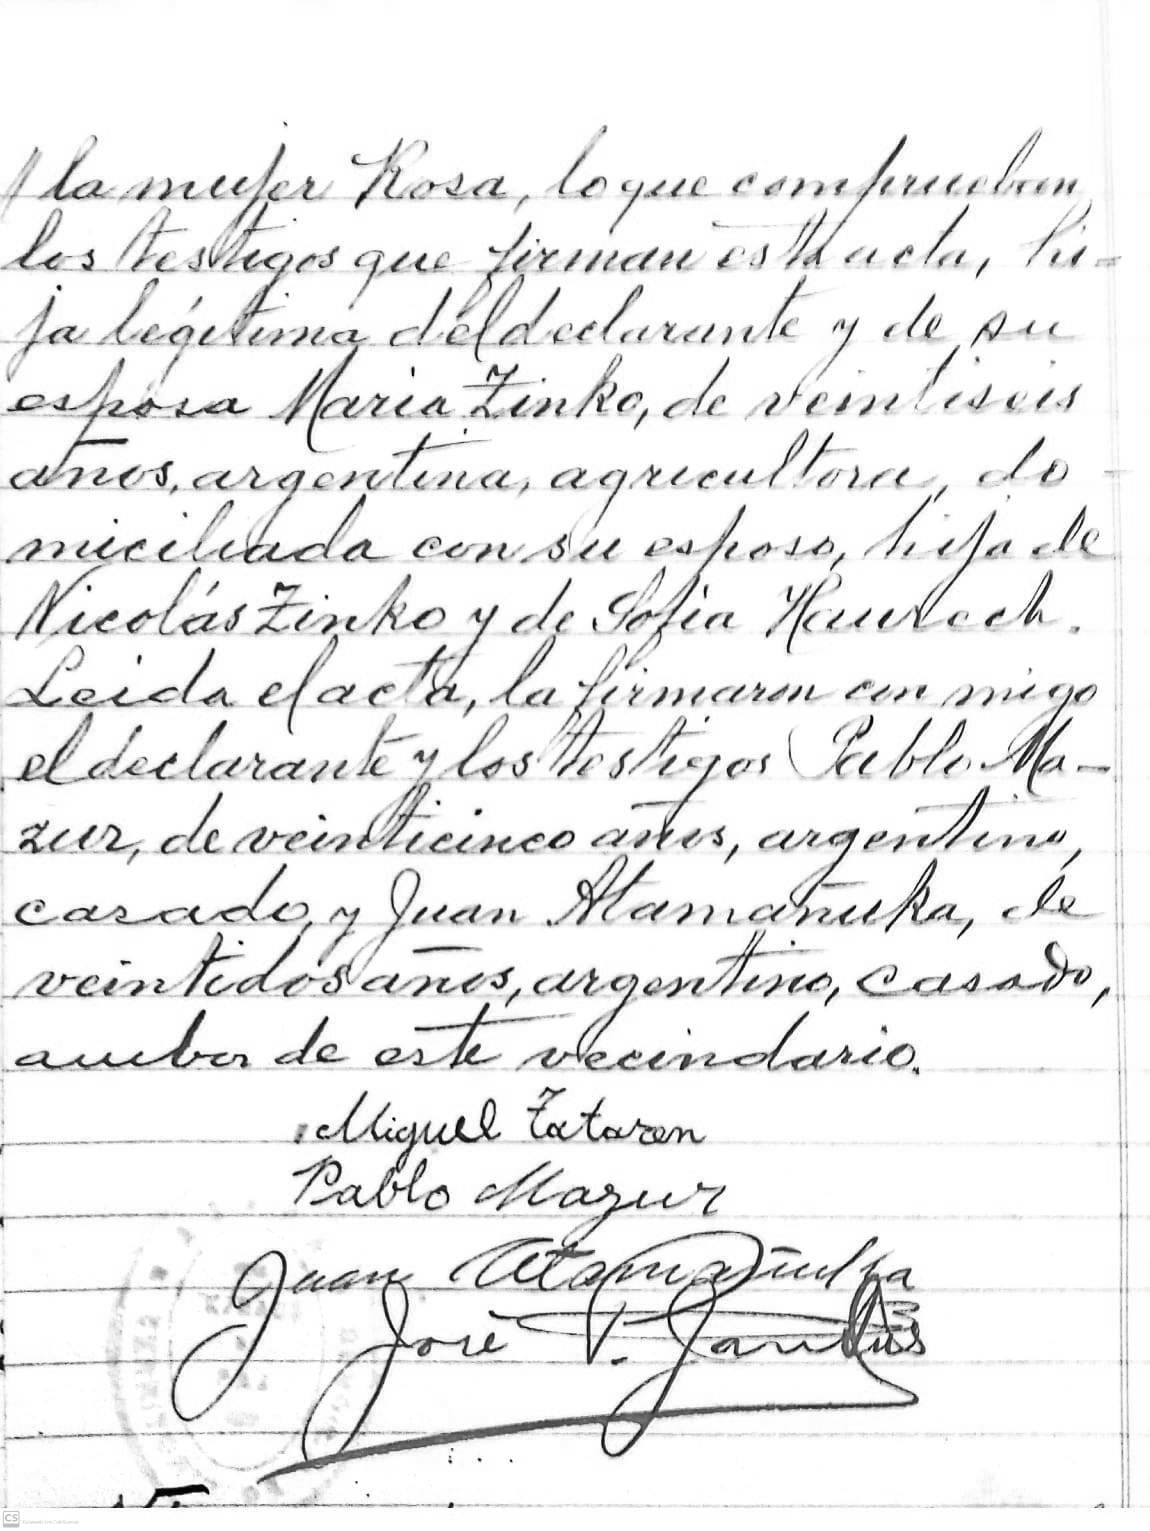 la mujer Rosa, lo que comprueban
los testigos que firman esta acta, hi=
ja legítima del declarante y de su
esposa María Zinko, de veintiseis
años, argentina, agricultora, do-
miciliada con su esposo, hija de
Nicolás Zinko y de Sofía Haurech.
Leida el acta, la firmaron con migo
el declarante y los testigos Pablo Ma-
zur, de veinticinco años, argentino,
casado, y Juan Atamañuka, de
veintidos años, argentino, casado,
ambos de este vecindario.
Miguel Tataren
Pablo Mazur
Juan Atamañuka
José P.
CS